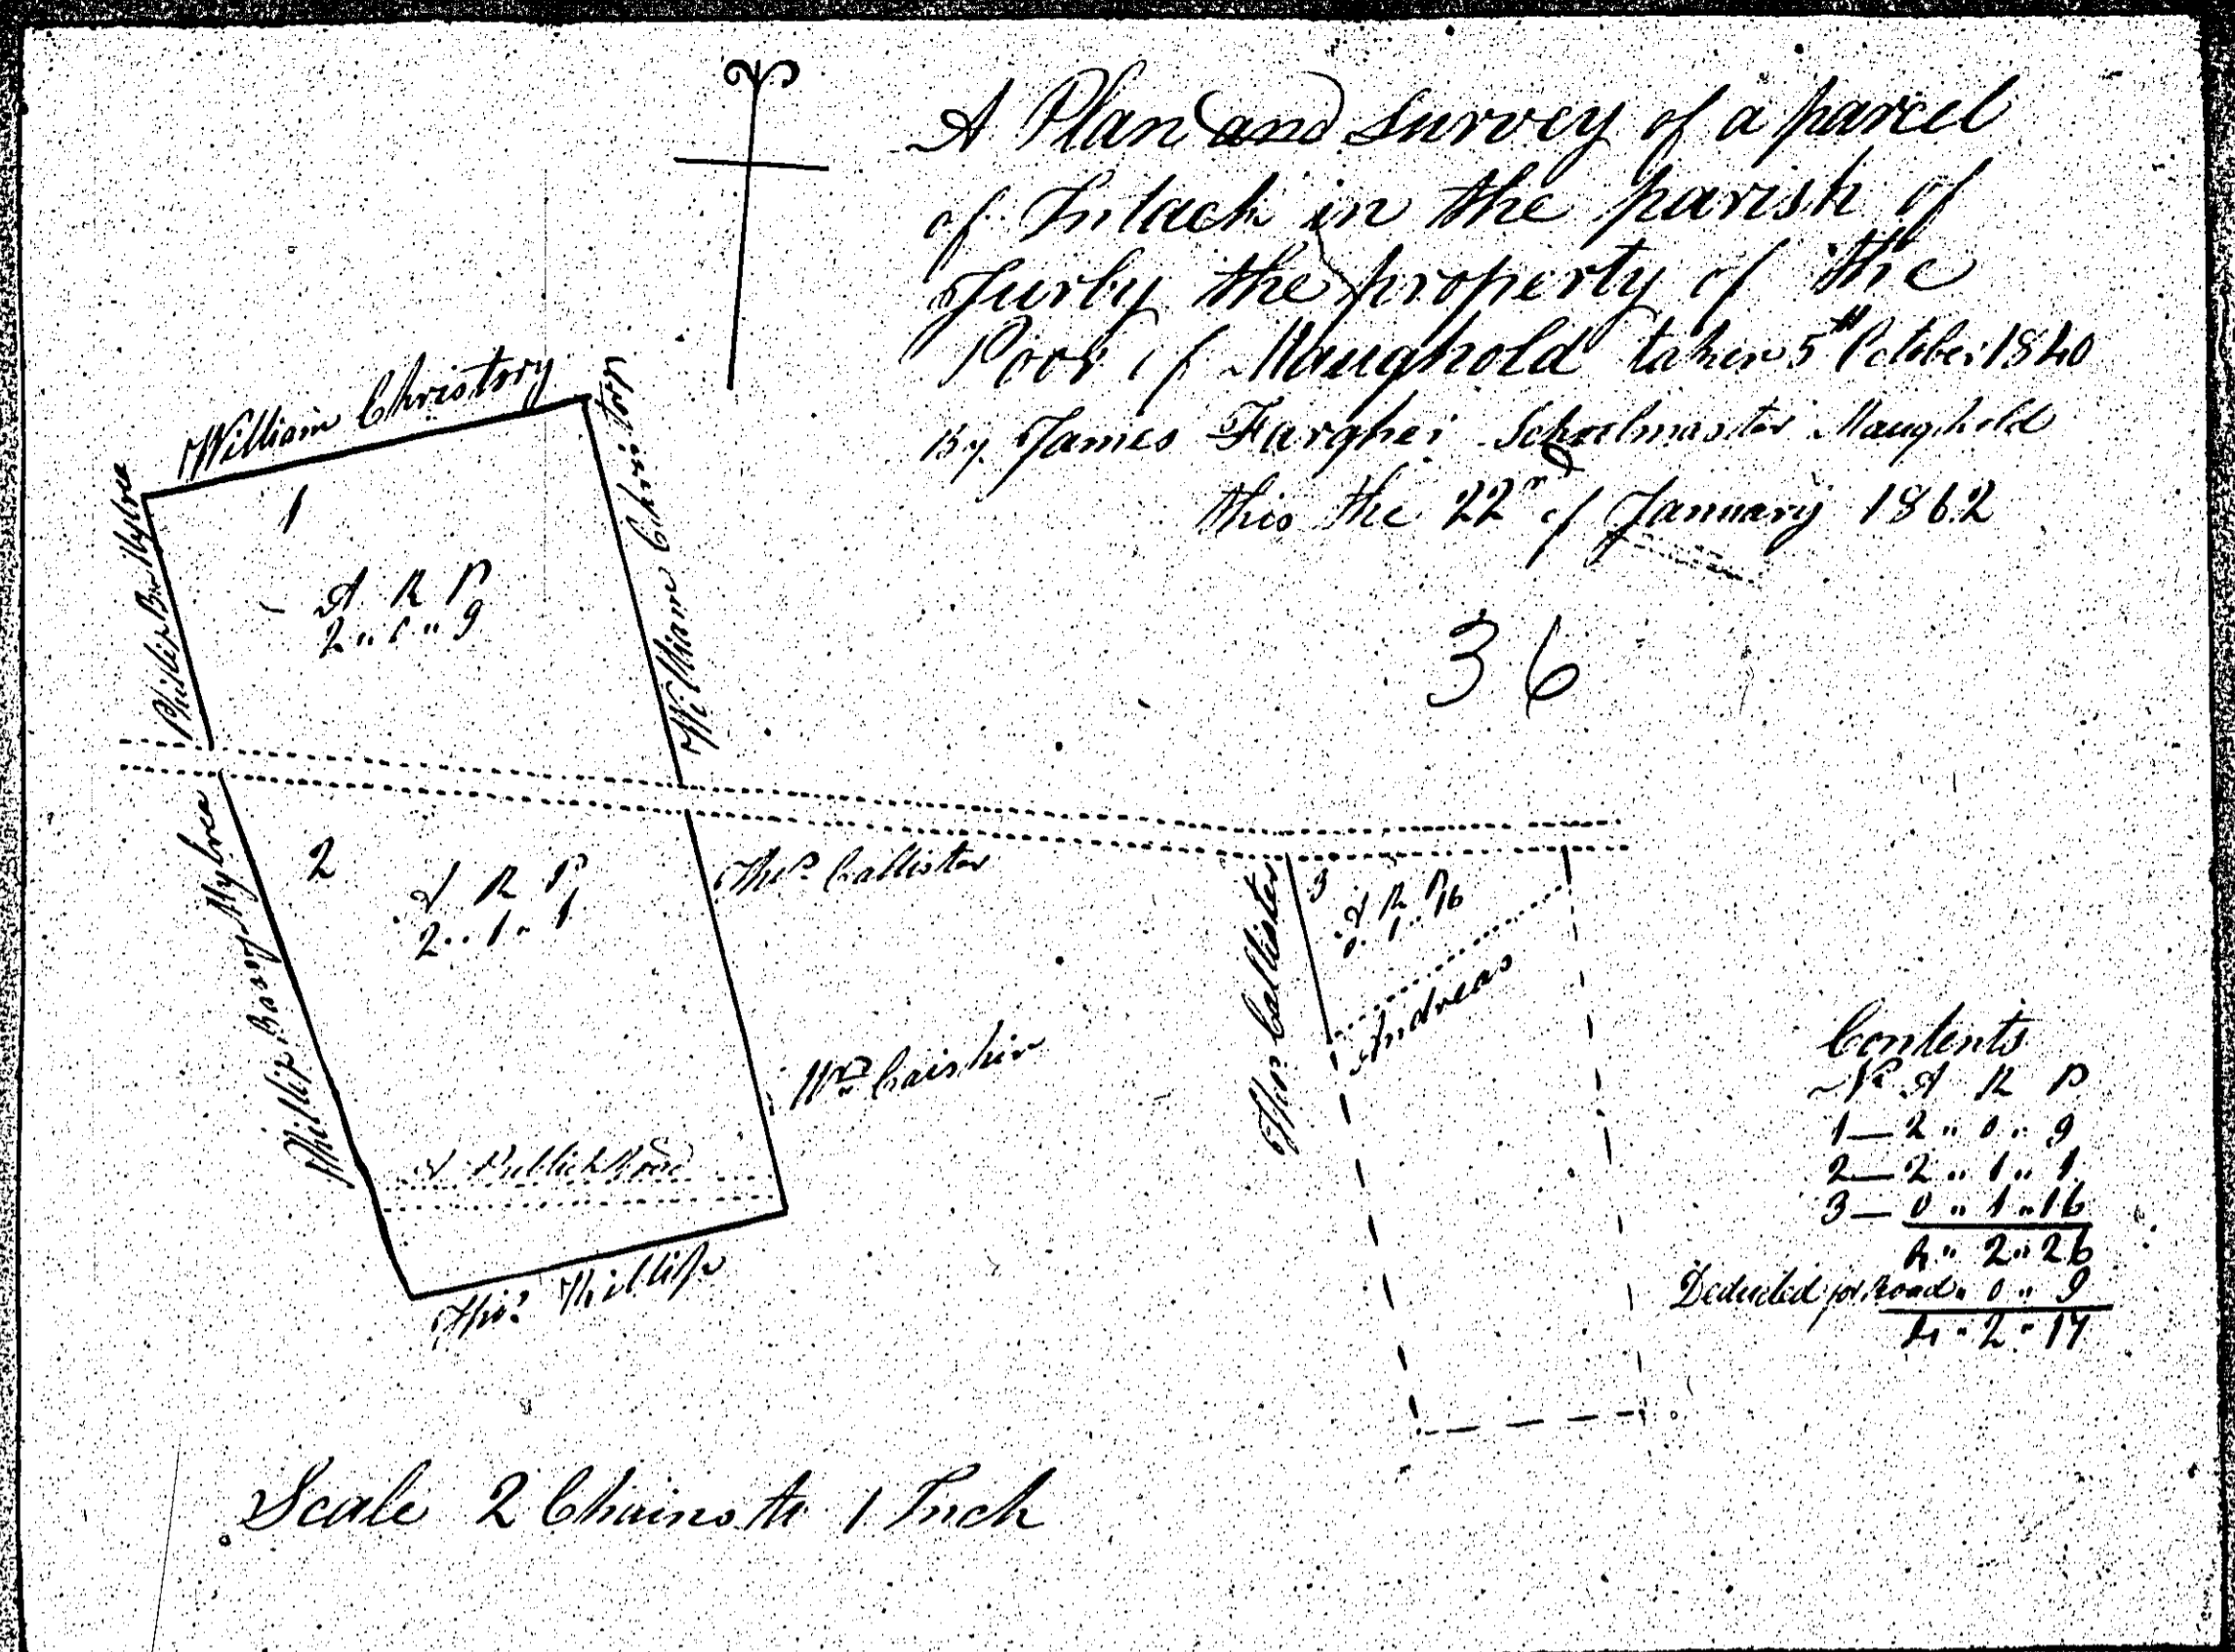 A Plan and Survey of a parcel
of Intack in the parish of
Jurby the property of the
Poor of Maughold taken 5th October 1840
By James Fargher Schoolmaster Maughold
this the 22n of January 1862
36
William Christory
William Christory
1
A R P
2 " 0 " 9
2
A R P
2 " 1 " 1
Thos Callister
Wm Caishin
A Publick Road
Thos Phillips
Thos Callister
3
A R P
0 " 1 " 16
Andreas
Contents
No A R P
1 — 2 " 0 " 9
2 — 2 " 1 " 1
3 — 0 " 1 " 16
4 " 2 " 26
Deducted for Road " 0 " 9
4 " 2 " 17
Phillip Mylrea
Phillip Mylrea
Scale 2 Chains to 1 Inch